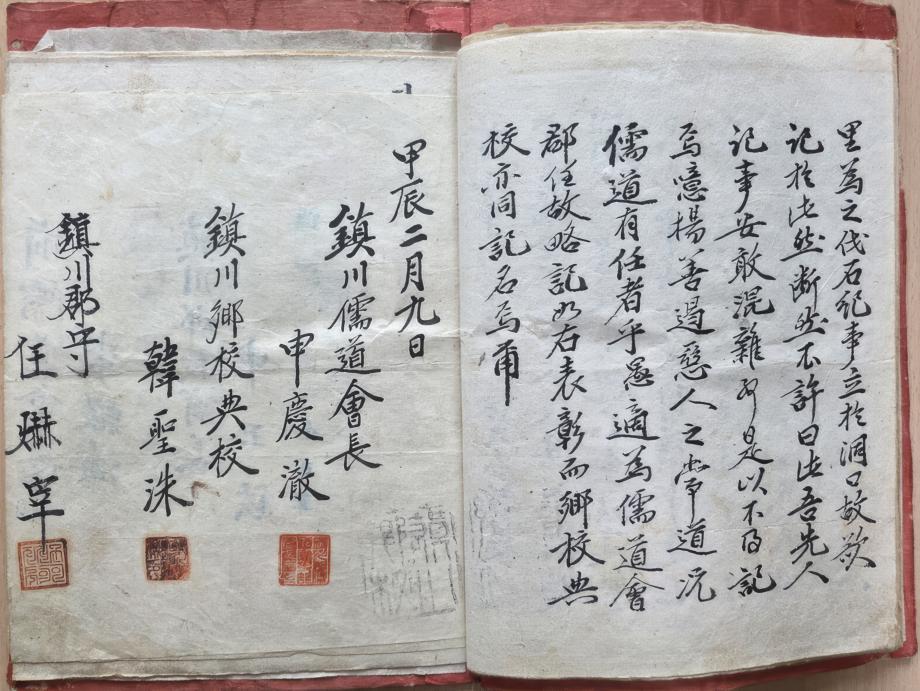 里為之伐石紀事立於洞口故欲
記於此然斷然不許曰此吾先人
記事安敢混雜如是以不得記
焉噫揚善遏惡人之常道况
儒道有任者乎愚適為儒道會
郡任故略記如右表彰而鄉校典
校亦同記名焉甫
甲辰二月九日
鎮川儒道會長
申慶澈
鎮川鄉校典校
韓聖洙
鎮川郡守
任 宰